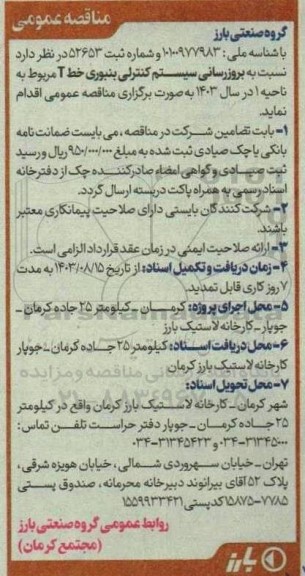 مناقصه عمومی
گروه صنعتی بارز
با شناسه ملی: ۱۰۱۰۰۹۷۷۹۸۳ و شماره ثبت ۵۲۶۵۳ در نظر دارد
نسبت به بروزرسانی سیستم کنترلی بنبوری خط T مربوط به
ناحیه ۱ در سال ۱۴۰۳ به صورت برگزاری مناقصه عمومی اقدام
نماید.
۱- بابت تضامین شرکت در مناقصه، می بایست ضمانت نامه
بانکی یا چک صیادی ثبت شده به مبلغ ۹۵۰/۰۰۰/۰۰۰ ریال و رسید
ثبت صیادی و گواهی امضاء صادرکننده چک از دفترخانه
اسناد رسمی به همراه پاکت دربسته ارسال گردد.
۲- شرکت کنندگان بایستی دارای صلاحیت پیمانکاری معتبر
باشند.
۳- ارائه صلاحیت ایمنی در زمان عقد قرارداد الزامی است.
۴- زمان دریافت و تکمیل اسناد: از تاریخ ۱۴۰۳/۰۸/۱۵ به مدت
۷ روز کاری قابل تمدید.
۵- محل اجرای پروژه: کرمان - کیلومتر ۲۵ جاده کرمان -
جوپار - کارخانه لاستیک بارز
۶- محل دریافت اسناد: کیلومتر ۲۵ جاده کرمان - جوپار
کارخانه لاستیک بارز کرمان
۷- محل تحویل اسناد:
شهر کرمان - کارخانه لاستیک بارز کرمان واقع در کیلومتر
۲۵ جاده کرمان - جوپار دفتر حراست تلفن تماس:
۰۳۴-۳۱۳۴۵۰۰۰ و ۰۳۴-۳۱۳۴۵۴۲۳
تهران - خیابان سهروردی شمالی، خیابان هویزه شرقی،
پلاک ۵۲ آقای بیرانوند دبیرخانه محرمانه، صندوق پستی
۱۵۸۷۵-۷۷۸۵ کدپستی ۱۵۵۹۹۳۳۴۲۱
روابط عمومی گروه صنعتی بارز
(مجتمع کرمان)
بارز